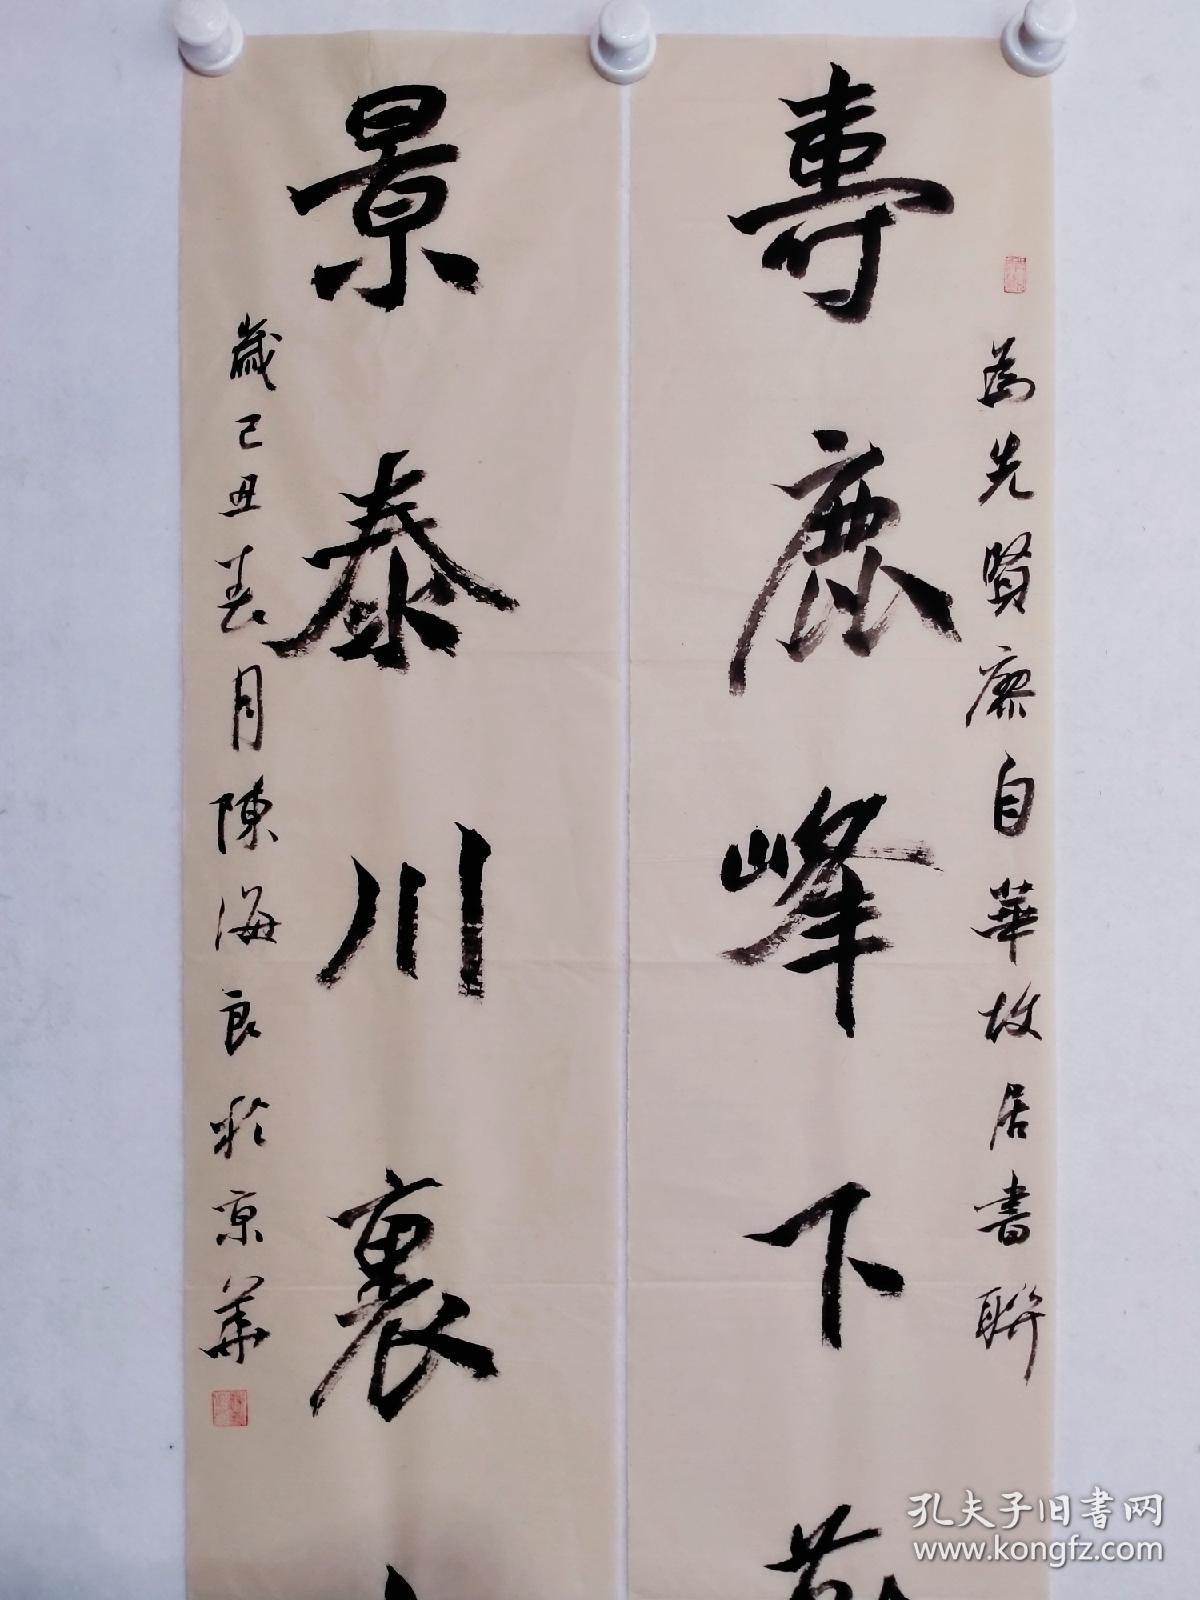 为先贤廖自華故居書聯
壽鹿峰下
景泰川裏
歲己丑春月陳海良於京華
孔夫子旧書网
www.kongfz.com